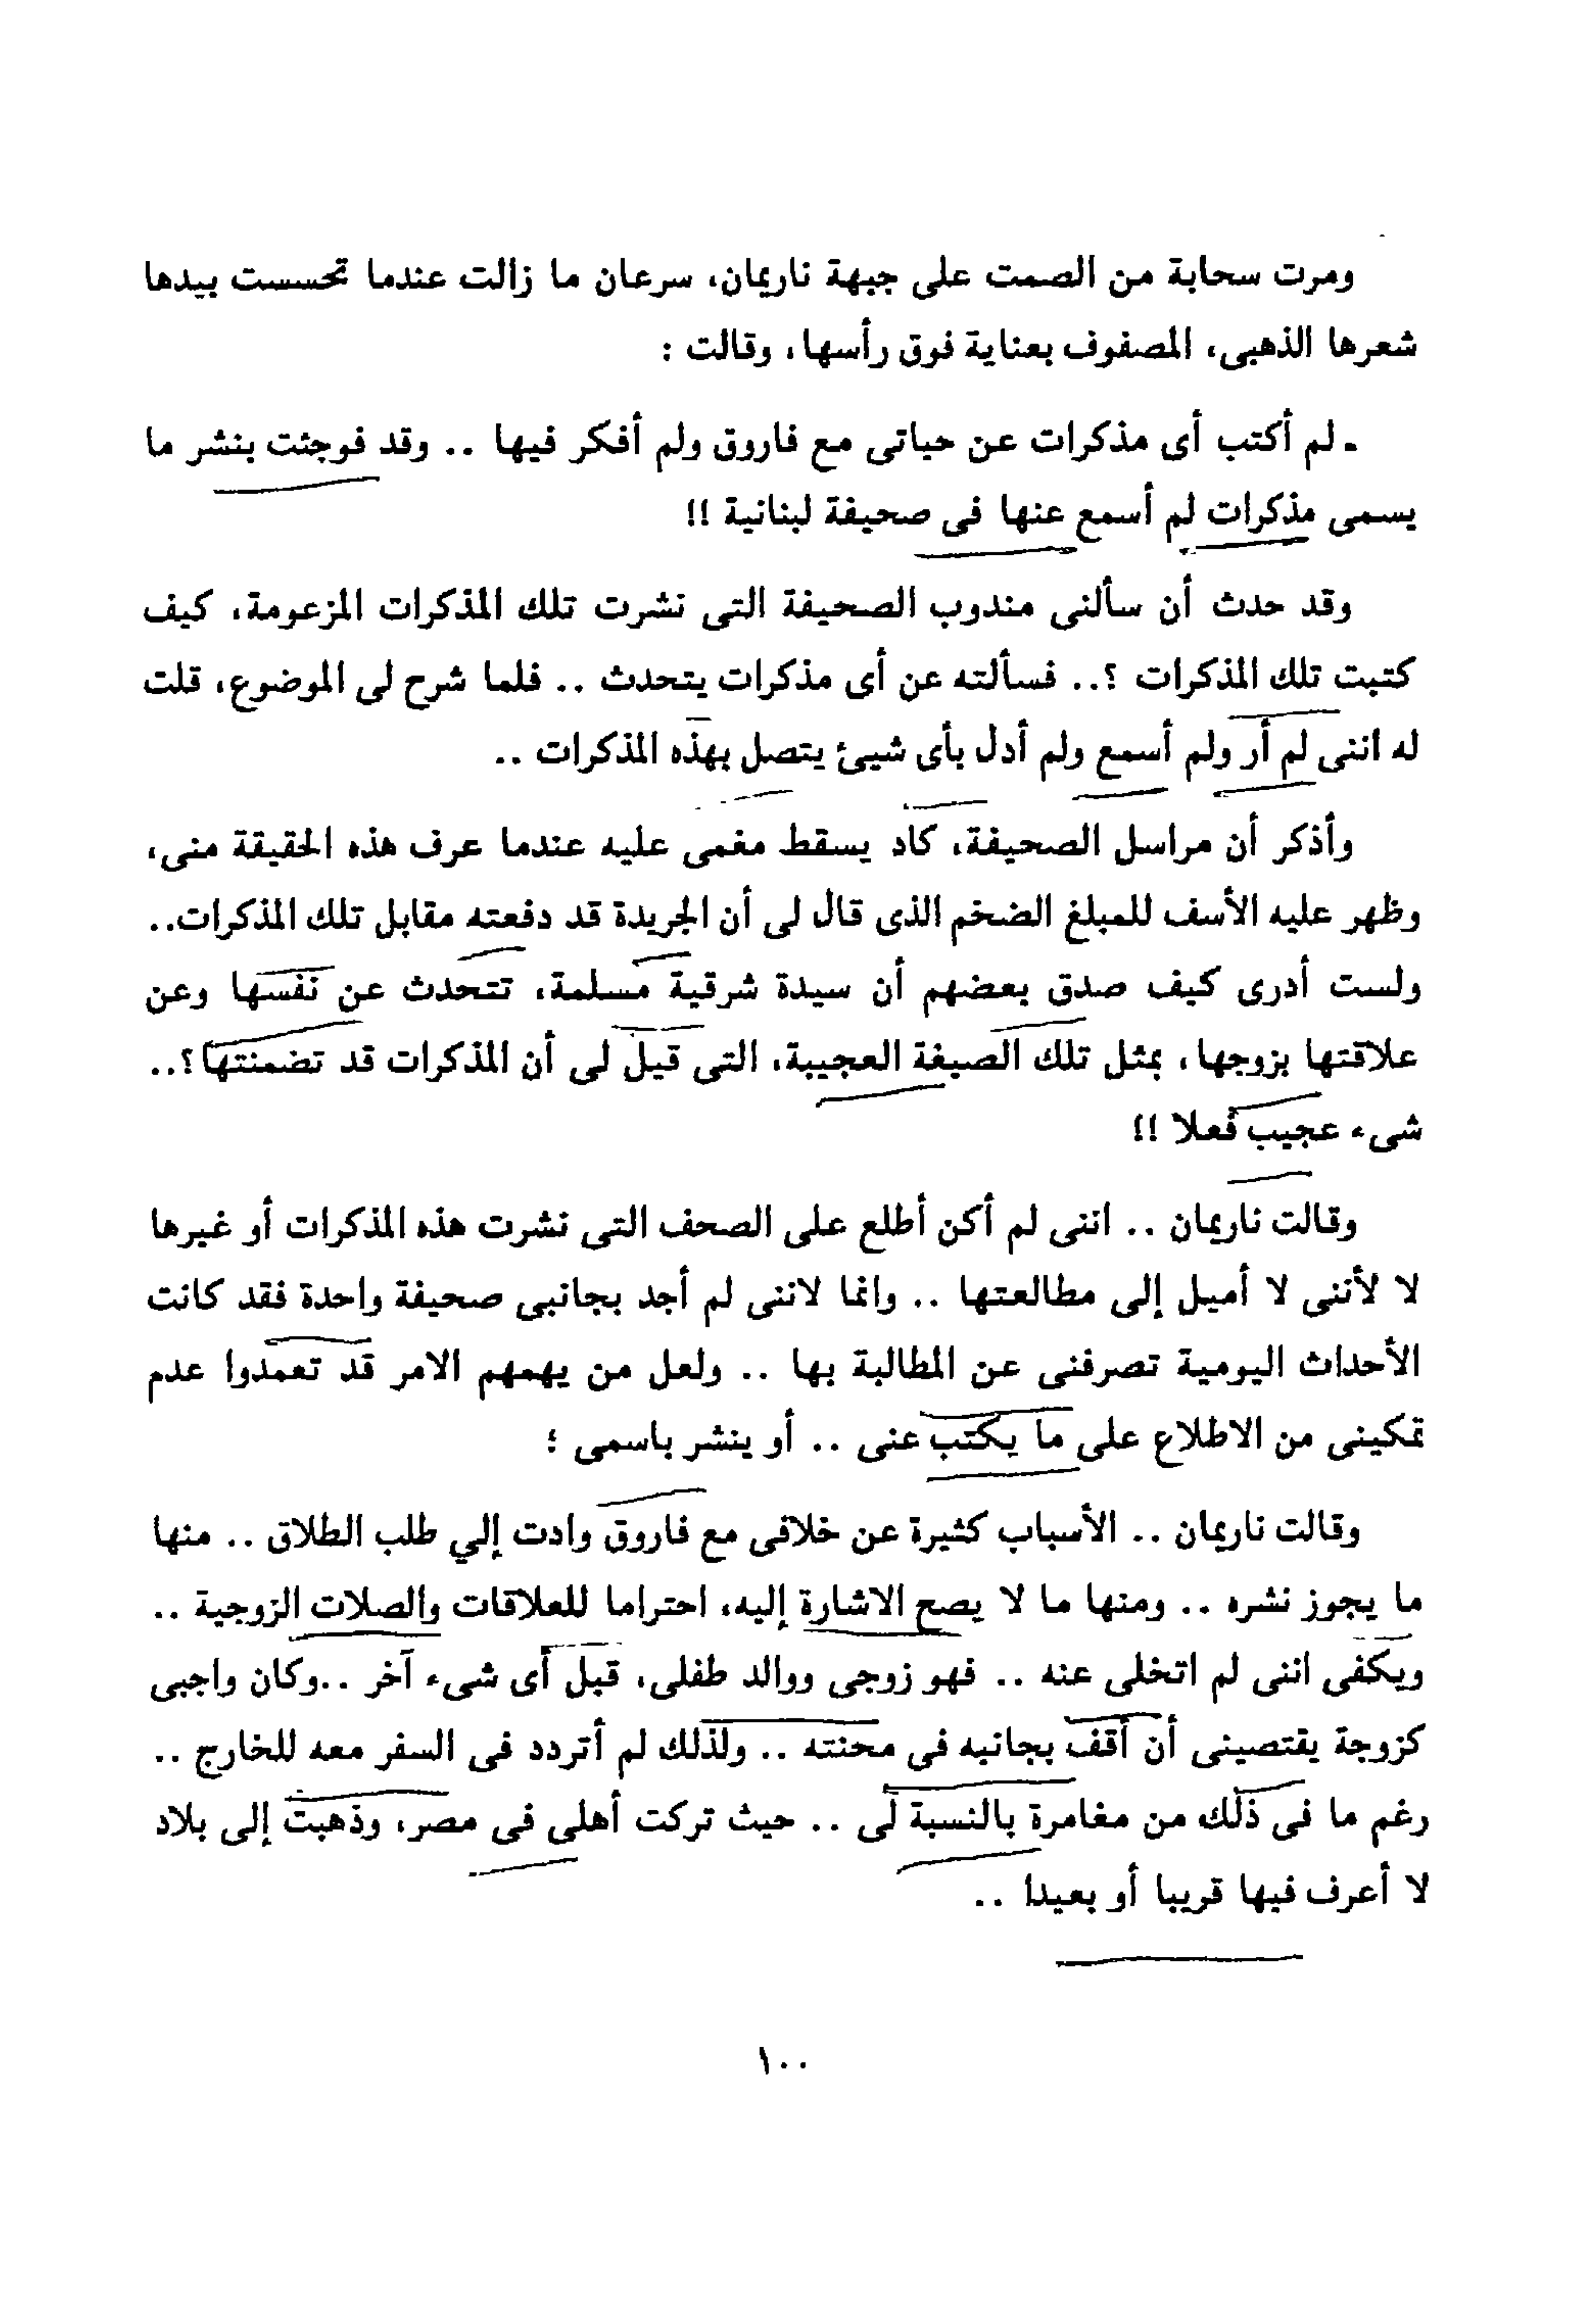 ومرت سحابة من الصمت على جبهة ناريمان، سرعان ما زالت عندما تحسست بيدها
شعرها الذهبى، المصفوف بعناية فوق رأسها، وقالت :
ـ لم أكتب أى مذكرات عن حياتى مع فاروق ولم أفكر فيها .. وقد فوجئت بنشر ما
يسمى مذكرات لم أسمع عنها فى صحيفة لبنانية !!
وقد حدث أن سألنى مندوب الصحيفة التى نشرت تلك المذكرات المزعومة، كيف
كتبت تلك المذكرات ؟.. فسألته عن أى مذكرات يتحدث .. فلما شرح لى الموضوع، قلت
له اننى لم أر ولم أسمع ولم أدل بأى شيئ يتصل بهذه المذكرات ..
وأذكر أن مراسل الصحيفة، كاد يسقط مغمى عليه عندما عرف هذه الحقيقة منى،
وظهر عليه الأسف للمبلغ الضخم الذى قال لى أن الجريدة قد دفعته مقابل تلك المذكرات..
ولست أدرى كيف صدق بعضهم أن سيدة شرقية مسلمة، تتحدث عن نفسها وعن
علاقتها بزوجها، بمثل تلك الصيغة العجيبة، التى قيل لى أن المذكرات قد تضمنتها؟..
شىء عجيب فعلا !!
وقالت ناريمان .. اننى لم أكن أطلع على الصحف التى نشرت هذه المذكرات أو غيرها
لا لأننى لا أميل إلى مطالعتها .. وانما لاننى لم أجد بجانبى صحيفة واحدة فقد كانت
الأحداث اليومية تصرفنى عن المطالبة بها .. ولعل من يهمهم الامر قد تعمدوا عدم
تمكينى من الاطلاع على ما يكتب عنى .. أو ينشر باسمى ؛
وقالت ناريمان .. الأسباب كثيرة عن خلافى مع فاروق وادت إلي طلب الطلاق .. منها
ما يجوز نشره .. ومنها ما لا يصح الاشارة إليه، احتراما للعلاقات والصلات الزوجية ..
ويكفى اننى لم اتخلى عنه .. فهو زوجى ووالد طفلى، قبل أى شىء آخر ..وكان واجبى
كزوجة يقتصينى أن أقف بجانبه فى محنته .. ولذلك لم أتردد فى السفر معه للخارج ..
رغم ما فى ذلك من مغامرة بالنسبة لى .. حيث تركت أهلى فى مصر، وذهبت إلى بلاد
لا أعرف فيها قريبا أو بعيدا ..
١٠٠